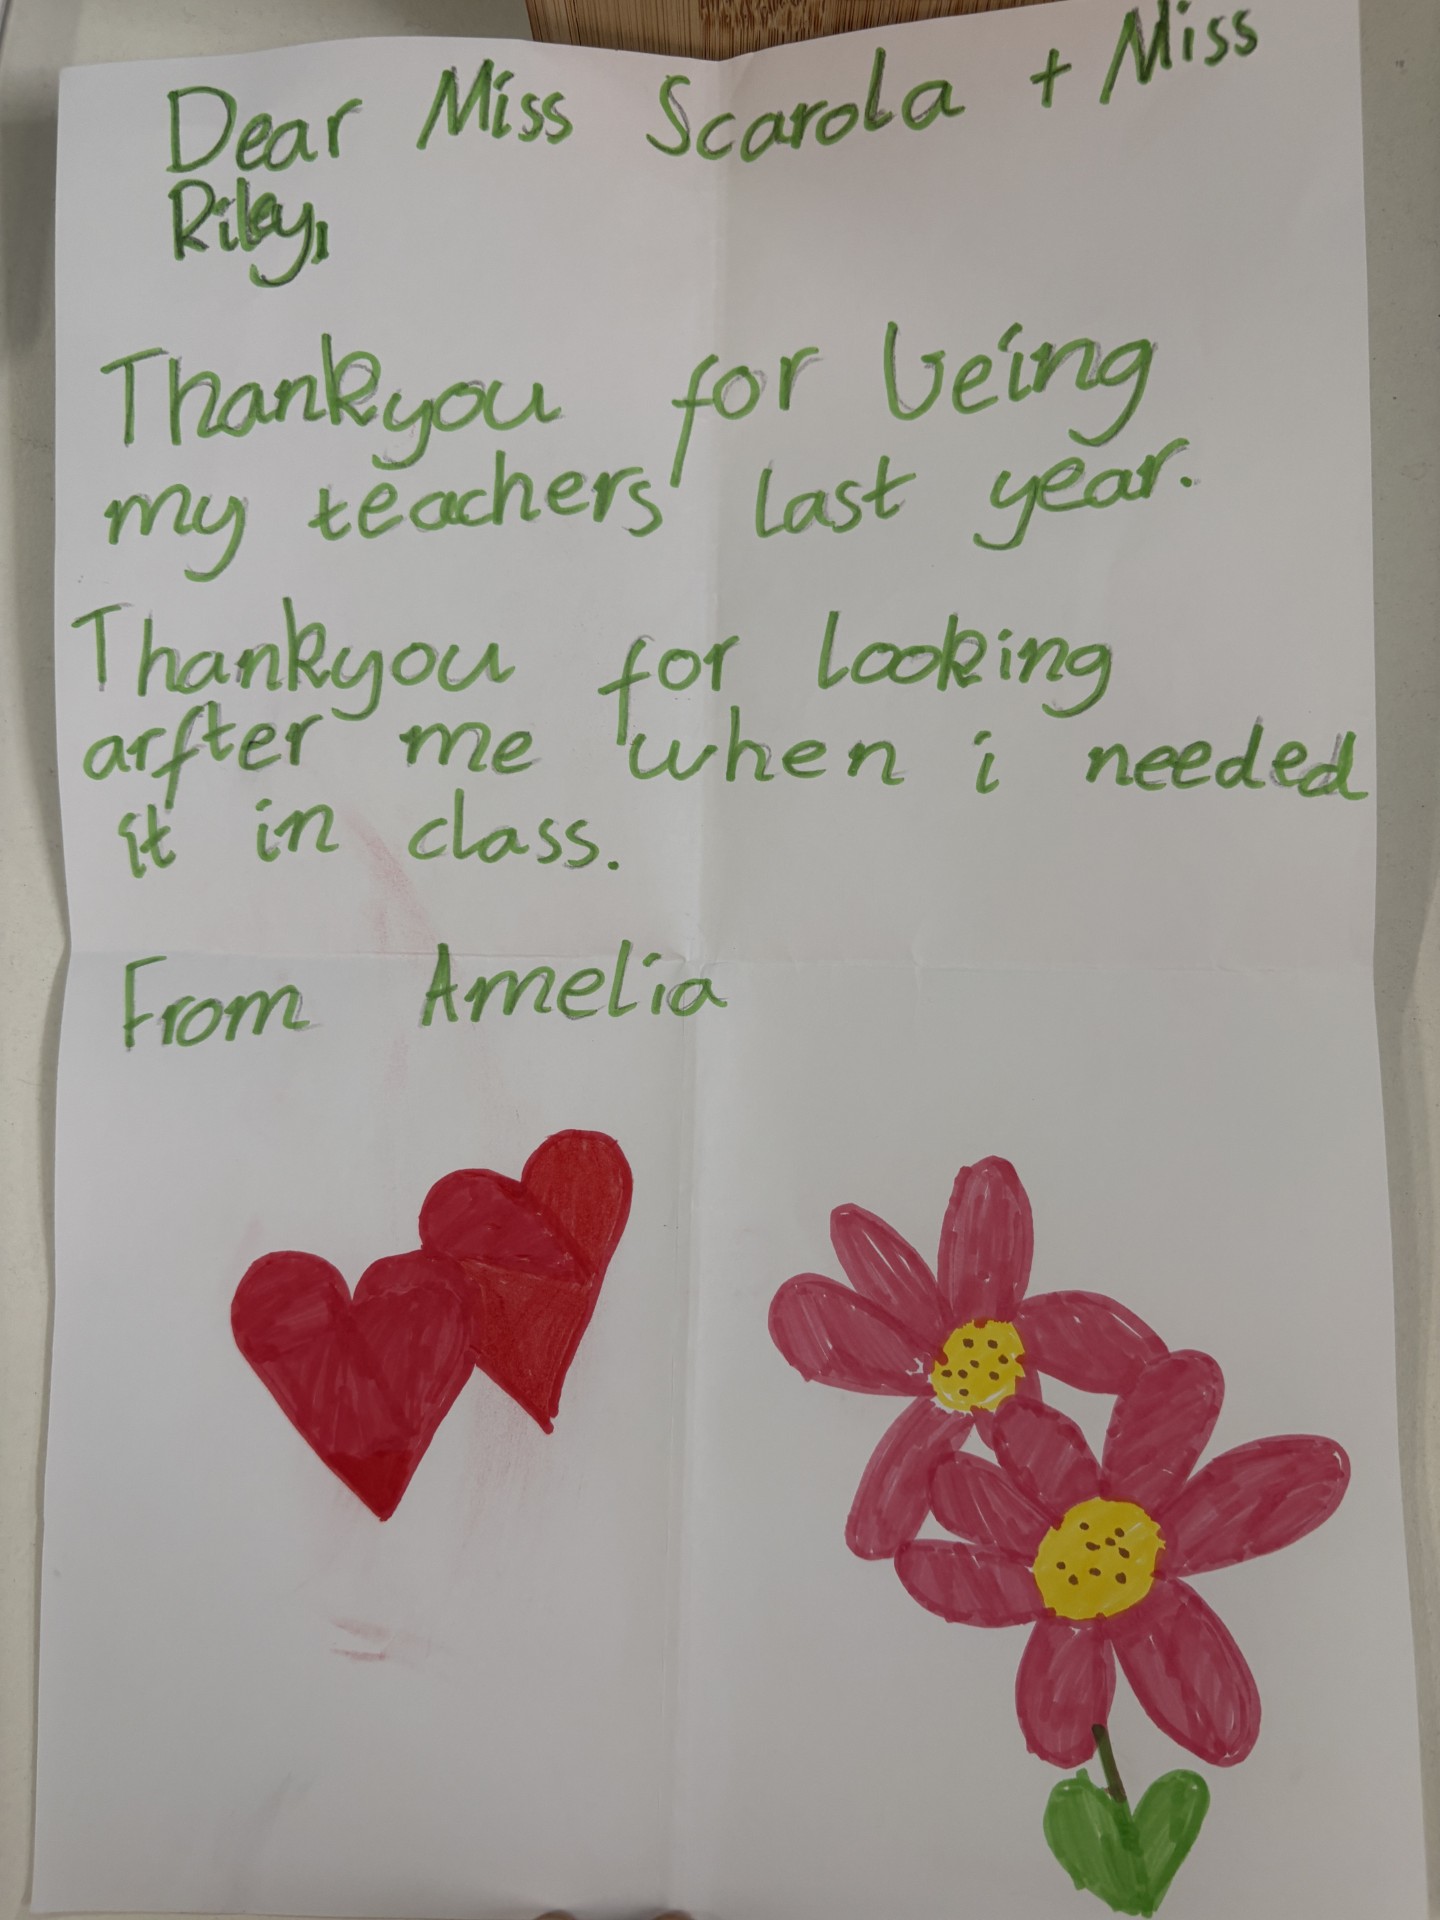 Dear Miss Scarola + Miss
Riley,
Thankyou for being
my teachers last year.
Thankyou for looking
arfter me when i needed
it in class.
From Amelia